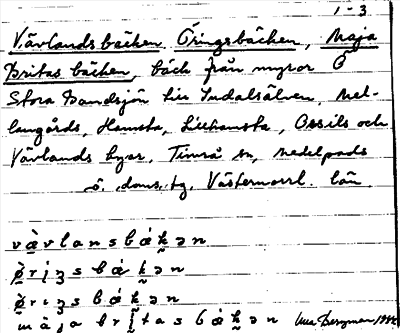 1-3
Vävlandsbäcken Öringsbäcken, Maja
Britas bäcken, bäck från myror Ö
Stora Bandsjön till Indalsälven, Mel-
langårds, Hamsta, Lillhamsta, Ossils och
Vävlands byar, Timrå sn, Medelpads
ö. doms. tg. Västernorrl. län
vàvlansbákən
ö̀riŋsbákən
ö̀riŋsbákən
màja brìtasbákən